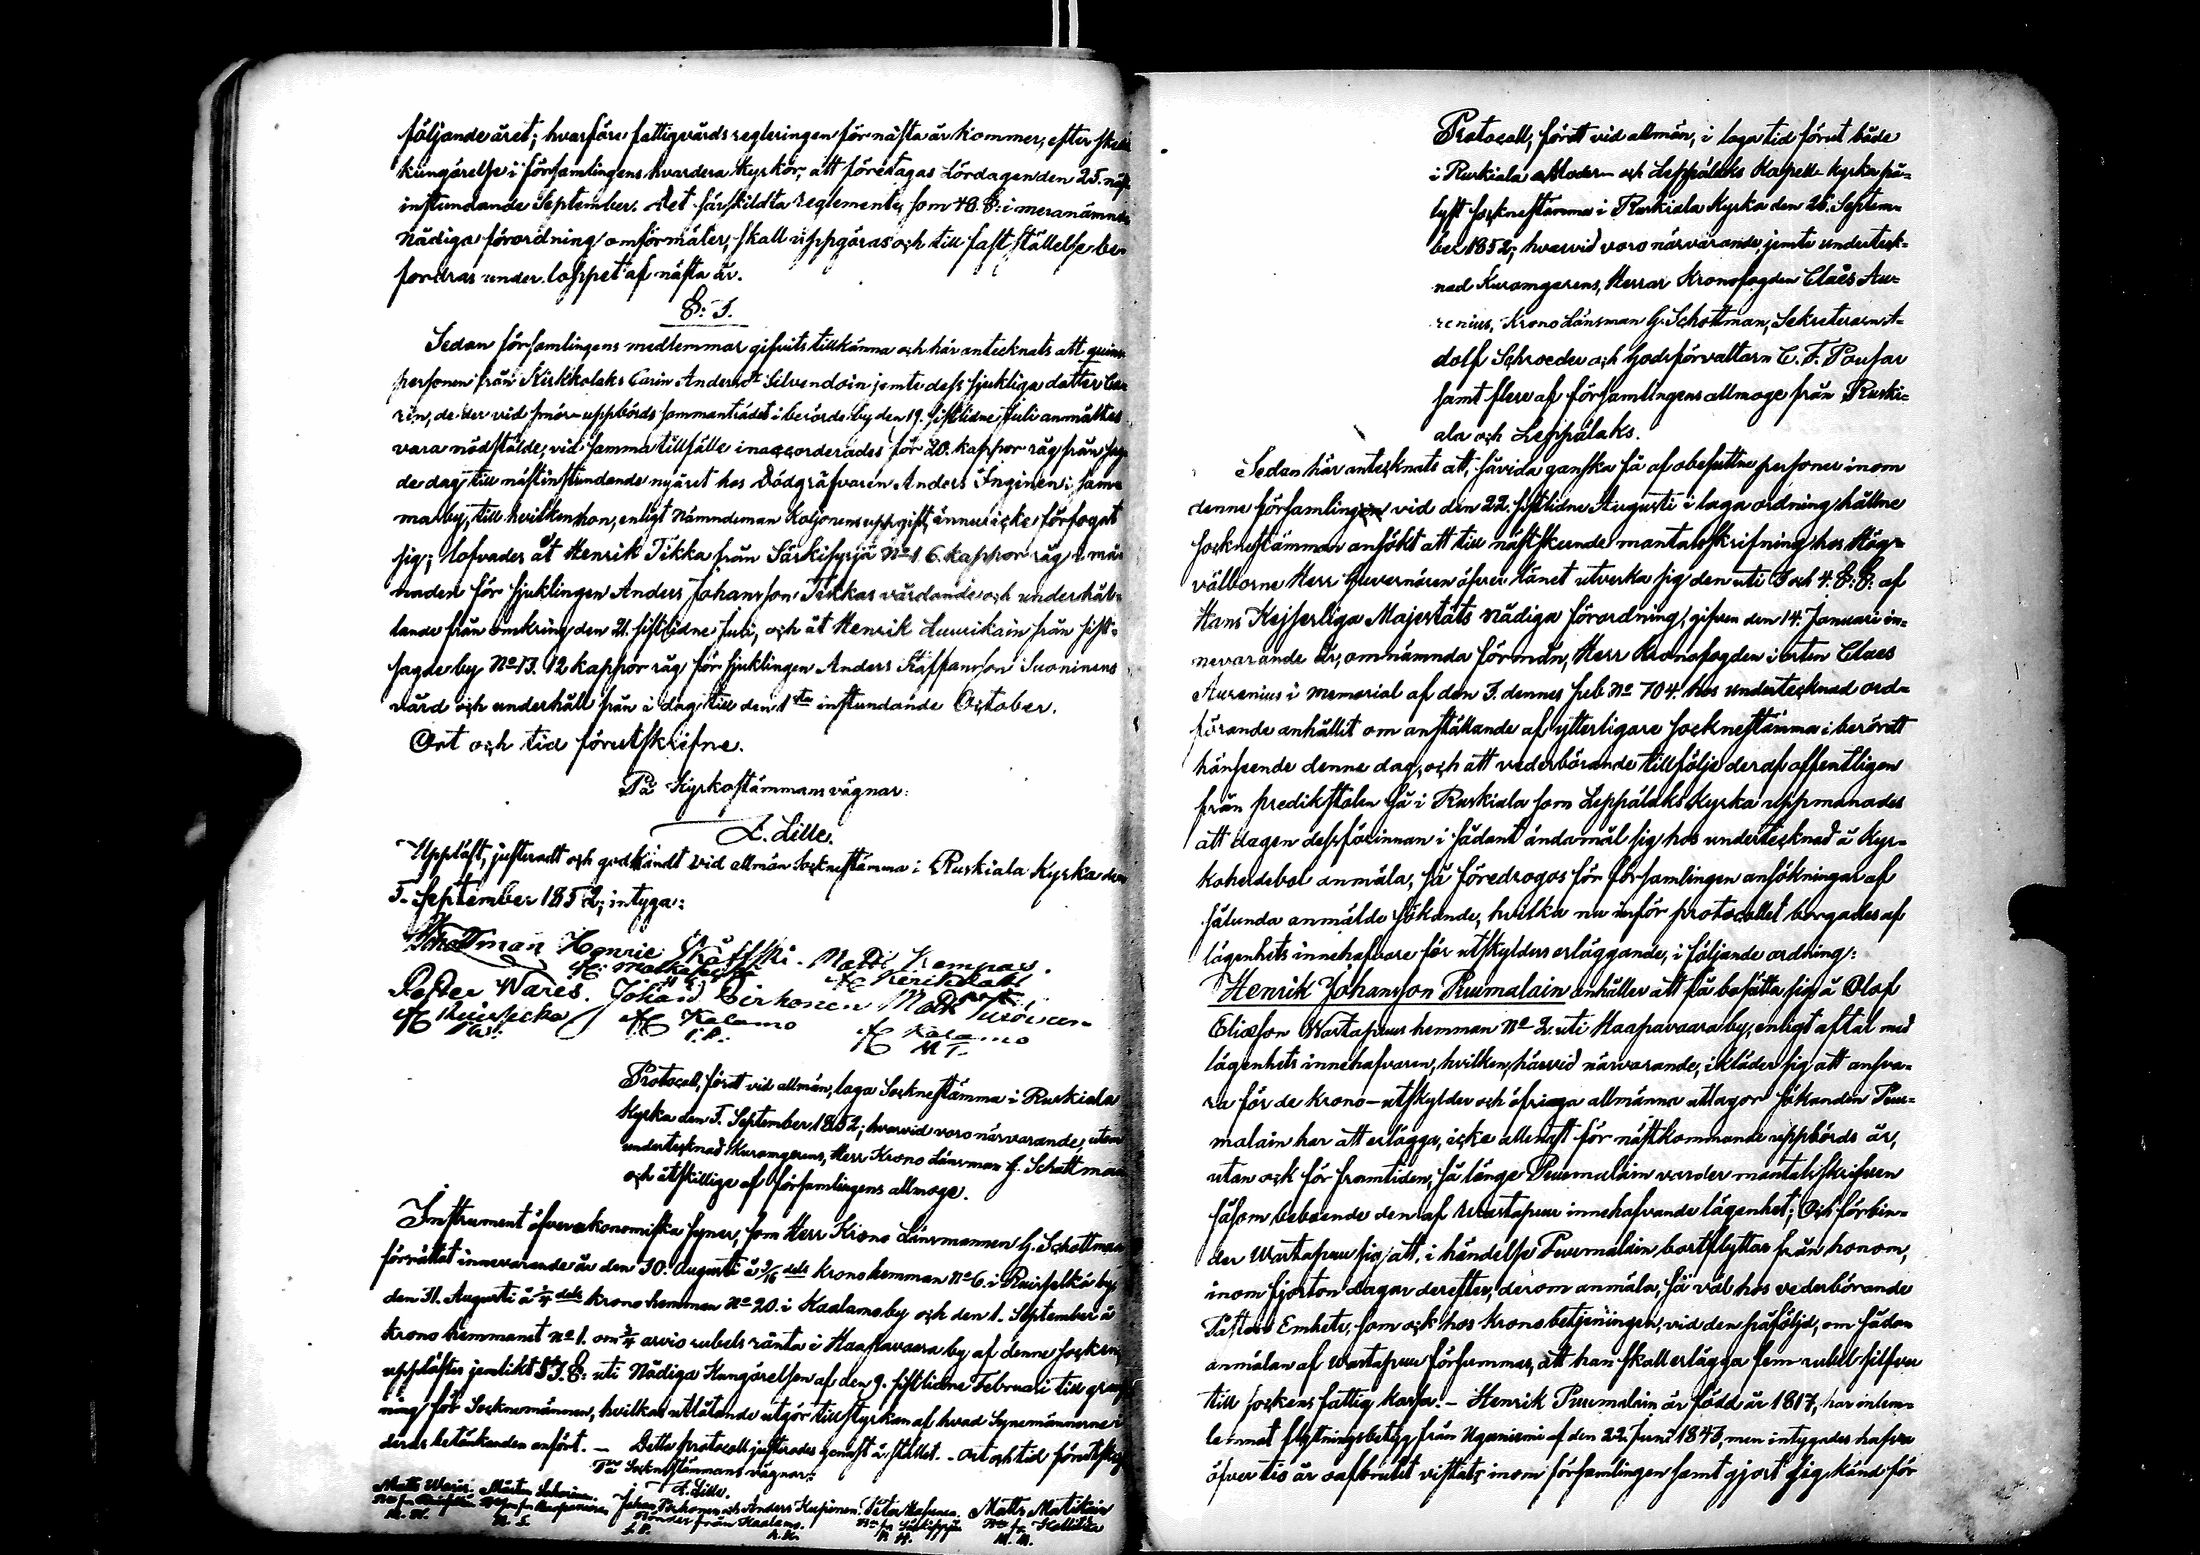 följande året; hvarföre fattigvårds regleringen för nästa år kommer, efter skedd
kungörelse i församlingens hvardera kyrkor, att företagas Lördagen den 25. näst
instundande September. Det särskildta reglemente, som 48. §: i meranämnde
Nådiga förordning omförmäler, skall uppgöras och till fastställelse be-
fordras under loppet af nästa år.
§: 5.
Sedan församlingens medlemmar gifvits tillkänna och här antecknats att quins-
personen från Kirkkolaks Carin Andersdr Silvendoin jemte dess sjukliga dotter Ca-
rin, de der vid smör-uppbörds sammanträdet i berörde by den 19. sistlidne Juli anmältes
vara nödstälde, vid samma tillfälle inaccorderades för 20. kappor råg från sag-
de dag till nästinstundande nyåret hos Dödgräfvaren Anders Inginen i sam-
ma by, till hvilken hon, enligt Nämndeman Koljonens uppgift, ännu icke förfogat
sig; lofvades åt Henrik Tikka från Särkisyrjä No 1. 6. kappor råg i må-
naden för sjuklingen Anders Johansson Tikkas vårdande och underhål-
lande från omkring den 21. sistlidne Juli, och åt Henrik Luurikain från sist-
sagde by No 13. 12 kappor råg för sjuklingen Anders Staffansson Suoninens
vård och underhåll från i dag till den 1sta instundande October.
Ort och tid förutskrifne.
På Kyrkostämmans vägnar:
A. Lille.
Uppläst, justeradt och godkändt vid allmän Sockenstämma i Ruskiala Kyrka den
5. September 1852; intyga:
Schottman Henric Rässki. Matti Kempas.
Petter Wares. Johan Pirhonen Matts
Kalamo Kalamo
P. W. J. P. M T.
Protocoll, fördt vid allmän, laga Sockenstämma i Ruskiala
Kyrka den 5. September 1852; hvarvid voro närvarande, utom
undertecknad Kuramgerens, Herr Krono Länsman G. Schottman
och åtskillige af församlingens allmoge.
Instrument öfver ekonomiska syner, som Herr Krono Länsmannen G. Schottman
förrättat innevarande år den 30. Augusti å 3/16 dels krono hemman No 6. i Ruisselkä by,
den 31. Augusti å 1/4 dels krono hemman No 20. i Kaalamo by och den 1. September å
Krono hemmanet No 1. om 3/4 arvio rubels ränta i Haapavaara by af denne socken,
upplästes jemlikt 53. §: uti Nådiga Kungörelsen af den 9. sistlidne Februari till gransk-
ning för Socknemännen, hvilkas utlåtande utgör tillstyrkan af hvad Synemännerne i
deras betänkanden anfört. — Detta protocoll justerades genast å stället. – Ort och tid förutskr.
På Sockenstämmans vägnar:
A. Lille.
Matts Wares. Mårten
Johan Pirhonen och Anders Kupinen. Peta Matts Matikain
Bönder från Kaalamo.
M. W. M. S. J. P. A. K. P. M. M. M.
Protocoll, fördt vid allmän, i laga tid förut både
i Ruskiala Moder- och Leppälaks Kapell-kyrka på-
lyst sockenstämma i Ruskiala Kyrka den 26. Septem-
ber 1852; hvarvid voro närvarande, jemte underteck-
nad Kuramgerens, Herrar Kronofogden Claës Au-
renius, Krono Länsman G. Schottman, Sekreteraren A-
dolf Schroeder och Godsförvaltarn C. F. Pousar
samt flere af församlingens allmoge från Ruski-
ala och Leppälaks.
Sedan här antecknats att, såvida ganska få af obesuttne personer inom
denne församling vid den 22. sistlidne Augusti i laga ordning hållne
sockenstämman ansökt att till nästskeende mantalsskrifning hos Hög-
välborne Herr Guvernören öfver länet utverka sig den uti 3 och 4. §.§. af
Hans Kejserliga Majestäts Nådiga förordning, gifven den 14. Januari in-
nevarande år, omnämnda förmån, Herr Kronofogden i orten Claes
Aurenius i memorial af den 3. dennes sub No 704. hos undertecknad ord-
förande anhållit om anställande af ytterligare sockenstämma i berördt
hänseende denne dag, och att vederbörande tillfölje deraf offentligen
från predikstolen så i Ruskiala som Leppälaks Kyrka uppmanades
att dagen dessförinnan i sådant ändamål sig hos undertecknad å Kyr-
koherdebol anmäla, så föredrogos för församlingen ansökningar af
sålunda anmälde sökande, hvilka nu inför protocollet borgades af
lägenhets innehafvare för utskylders erläggande, i följande ordning:
Henrik Johansson Puumalain anhåller att få besätta sig å Olof
Eliasson Wartapuus hemman No 2. uti Haapavaara by, enligt aftal med
lägenhets innehafvaren, hvilken, härvid närvarande, ikläder sig att ansva-
ra för de krono-utskylder och öfriga allmänna utlagor sökanden Puu-
malain har att erlägga, icke allenast för nästkommande uppbörds år,
utan ock för framtiden, så länge Puumalain varder mantalsskrifven
såsom beboende den af Wartapuu innehafvande lägenhet; Och förbin-
der Wartapuu sig, att, i händelse Puumalain bortflyttar från honom,
inom fjorton dagar derefter, derom anmäla, så väl hos vederbörande
Pastors Embete, som ock hos Kronobetjeningen, vid den påföljd, om sådan
anmälan af Wartapuu försummas, att han skall erlägga fem rubel silfver
till sockens fattig kassa. – Henrik Puumalain är född år 1817, har inlem-
lemnat flyttningsbetyg från Uguniemi af den 22. Juni 1843, men intygades hafva
öfver tio år oafbrutet vistats inom församlingen samt gjort sig känd för